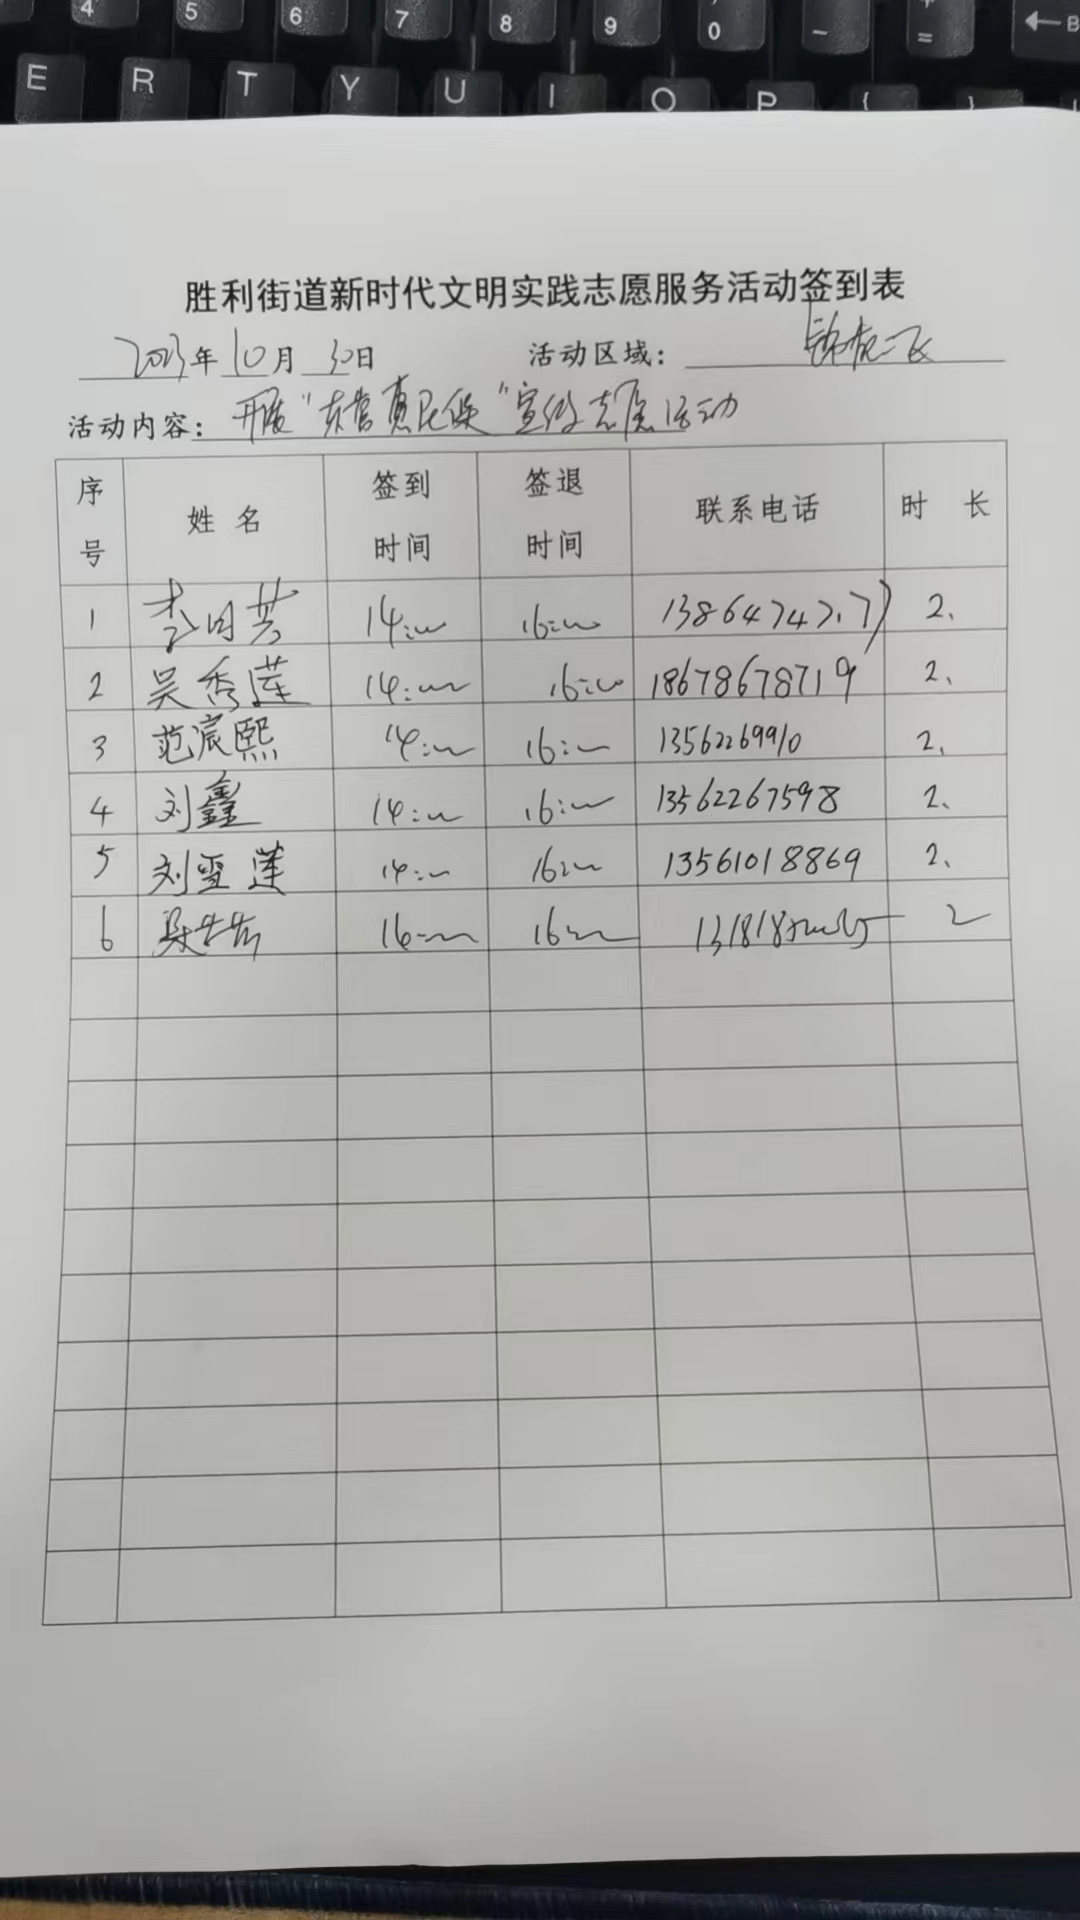 4 5 6 7 8 9 0 - + = ← B
E R T Y U I O P { }
胜利街道新时代文明实践志愿服务活动签到表
2023年10月30日 活动区域:
活动内容: 开展"东营惠民保"宣传志愿活动
序号 姓名 签到时间 签退时间 联系电话 时长
1 李日芸 14:00 16:00 2、
2 吴秀莲 14:00 16:00 18678678719 2、
3 范宸熙 14:00 16:00 13562269910 2、
4 刘鑫 14:00 16:00 13562267598 2、
5 刘雪莲 14:00 16:00 13561018869 2、
6 16:00 2